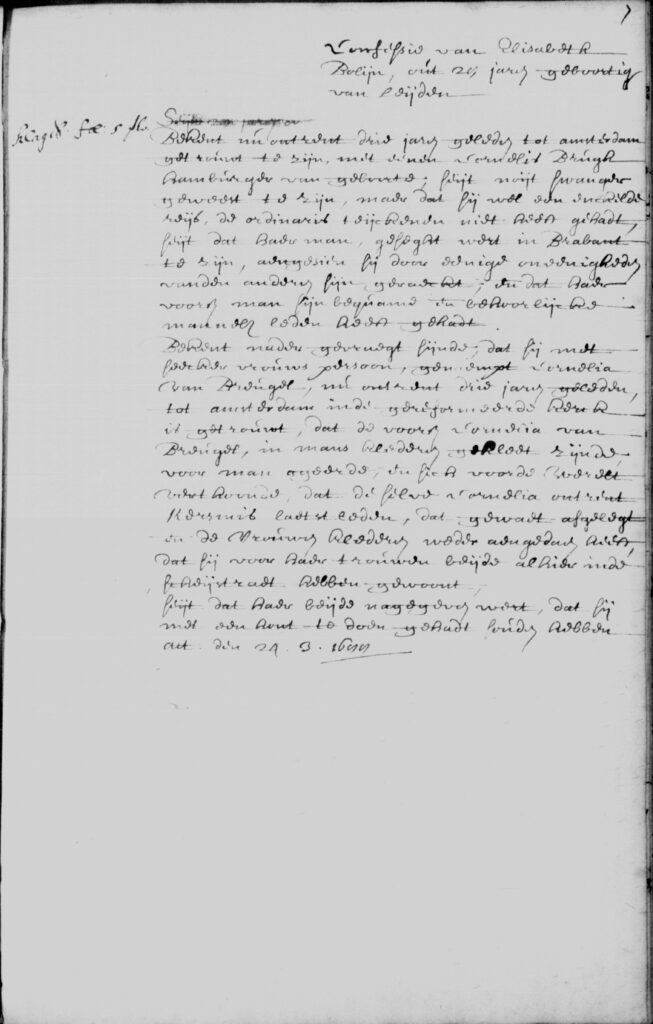 7
Confessie van Elisabeth
Bolijn, out 29 jaren geboortig
van Leijden
fol. 5
Bekent nu ontrent drie jaren geleden tot amsterdam
getrouwt te zijn, met eenen Cornelis Brugh
hamburger van geboorte; seijt noijt swanger
geweest te zijn, maer dat sij wel een enckelde
reijs, de ordinaris teijckenen niet heeft gehadt,
seijt dat haer man, geseght wert in Brabant
te zijn, aengesien sij door eenige oneenigheden
vanden anderen sijn geraeckt; en dat haer
voors man sijn bequame en behoorlijcke
mannelz leden heeft gehadt.
Bekent nader gevraegt sijnde, dat sij met
seecker vrouws persoon, genaempt Cornelia
van Breugel, nu ontrent drie jaren geleden,
tot amsterdam inde gereformeerde kerck
is getrouwt, dat de voors Cornelia van
Breugel, in mans klederen gekleet zijnde,
voor man ageerde, en sich voorde werelt
verthoonde, dat de selve Cornelia ontrent
Kersmis laetst leden, dat gewaet afgelegt
en de vrouwen klederen weder aengedaen heeft,
dat sij voor haer trouwen beijde alhier inde
scheijstraet hebben gewoont,
seijt dat haer beijde nagegeven wert, dat sij
met een hont te doen gehadt souden hebben
act. den 24. 3.